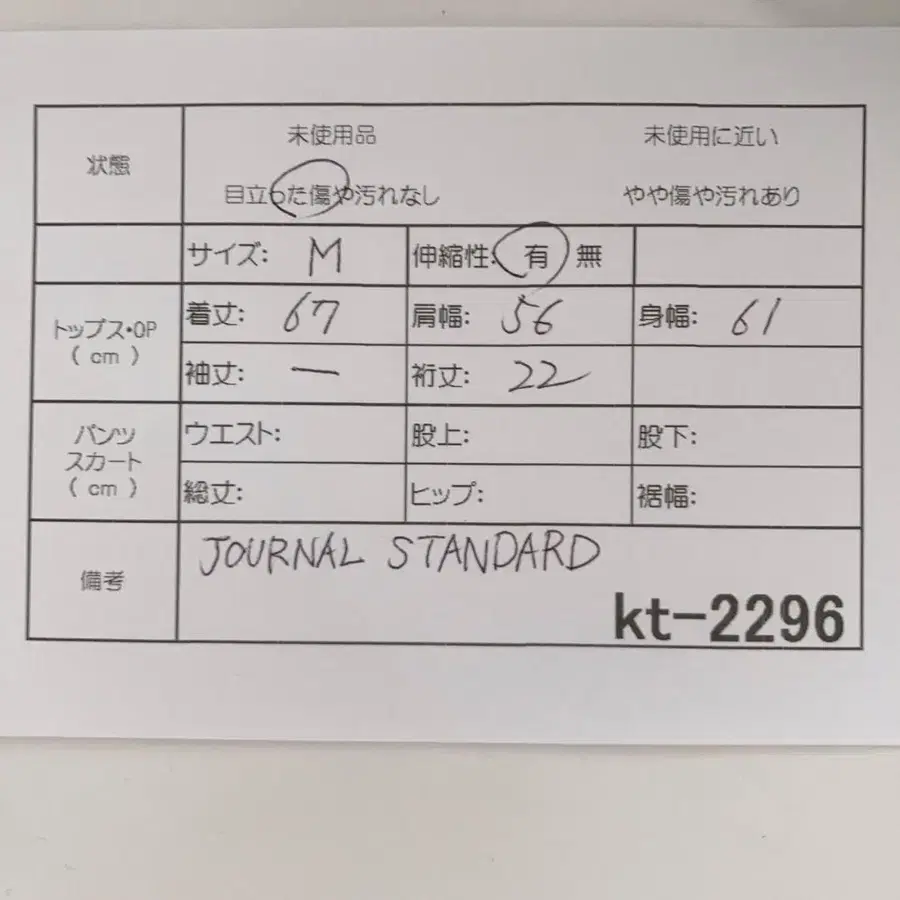 状態
未使用品 未使用に近い
目立った傷や汚れなし やや傷や汚れあり
サイズ: M 伸縮性: 有 無
トップス・OP
( cm )
着丈: 67 肩幅: 56 身幅: 61
袖丈: ー 裄丈: 22
パンツ
スカート
( cm )
ウエスト: 股上: 股下:
総丈: ヒップ: 裾幅:
備考
JOURNAL STANDARD
kt-2296